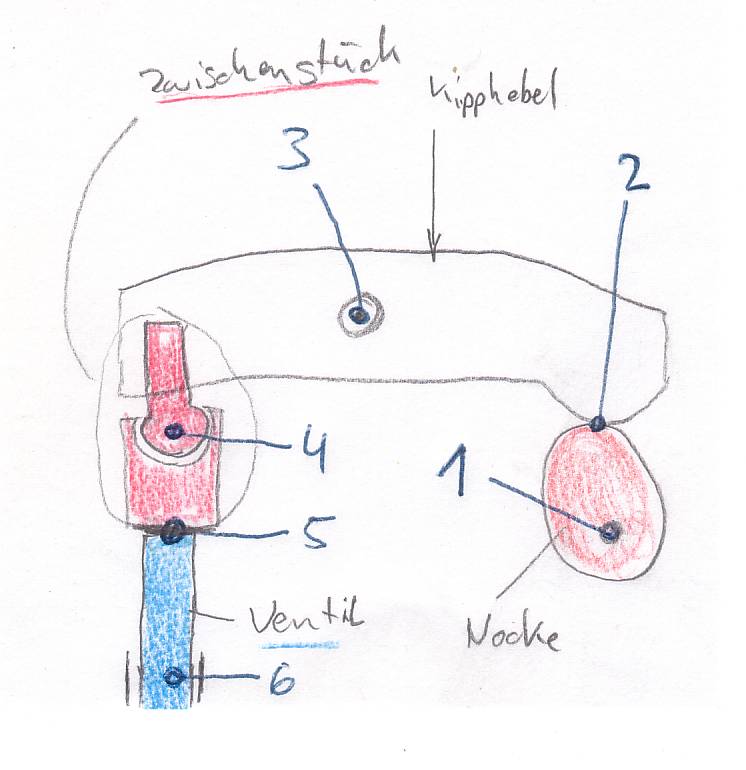 Zwischenstück
Kipphebel
3
2
4
1
5
Ventil
Nocke
6